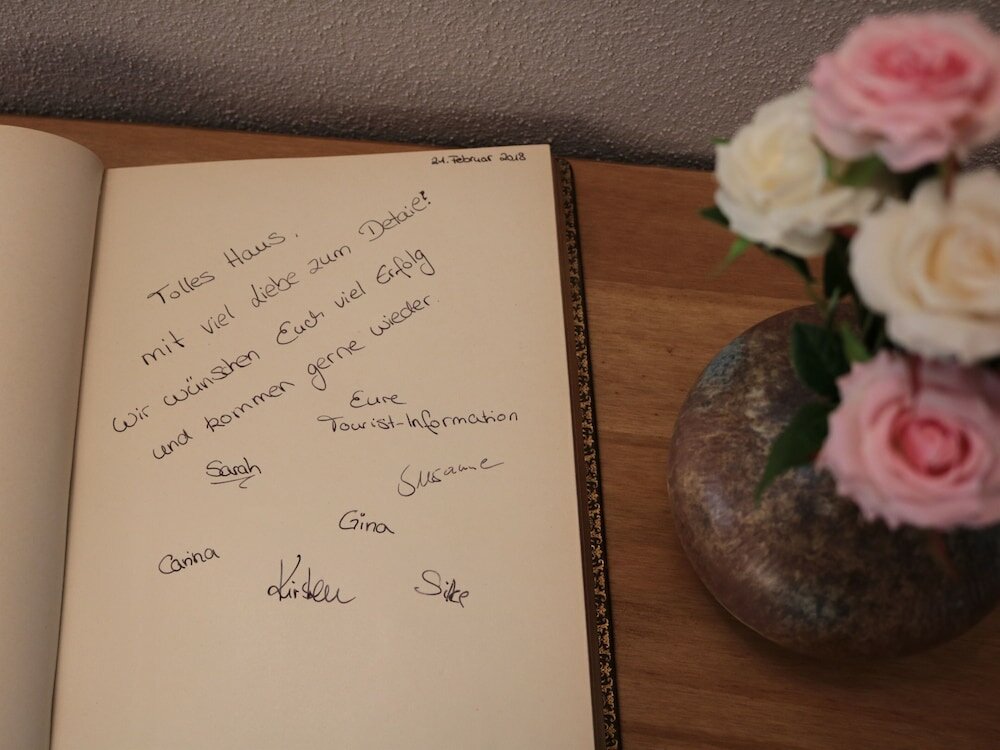 21. Februar 2018
Tolles Haus,
mit viel Liebe zum Detail!
Wir wünschen Euch viel Erfolg
und kommen gerne wieder.
Eure
Tourist-Information
Sarah
Susanne
Gina
Carina
Kirsten
Silke